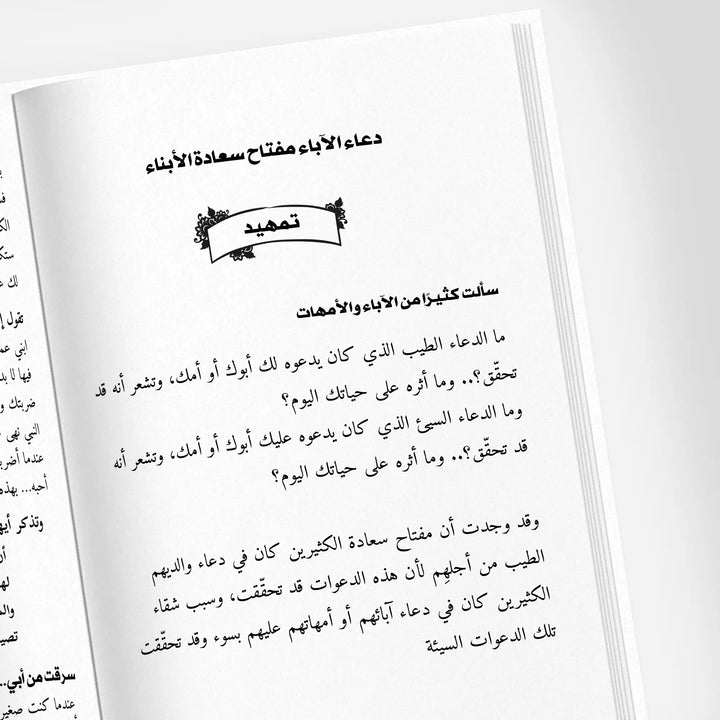 دعاء الآباء مفتاح سعادة الأبناء
تمهيد
سألت كثيرًا من الآباء والأمهات
ما الدعاء الطيب الذي كان يدعوه لك أبوك أو أمك، وتشعر أنه قد
تحقّق؟.. وما أثره على حياتك اليوم؟
وما الدعاء السيئ الذي كان يدعوه عليك أبوك أو أمك، وتشعر أنه
قد تحقّق؟.. وما أثره على حياتك اليوم؟
وقد وجدت أن مفتاح سعادة الكثيرين كان في دعاء والديهم
الطيب من أجلهِم لأن هذه الدعوات قد تحقّقت، وسبب شقاء
الكثيرين كان في دعاء آبائهم أو أمهاتهم عليهم بسوء وقد تحقّقت
تلك الدعوات السيئة
لك
تقول
ابني
فيها لا
ضربتك
النبي نهى
عندما
أحبه... بهذه
وتذكر
تصير
سرقت من أبي..
عندما كنت